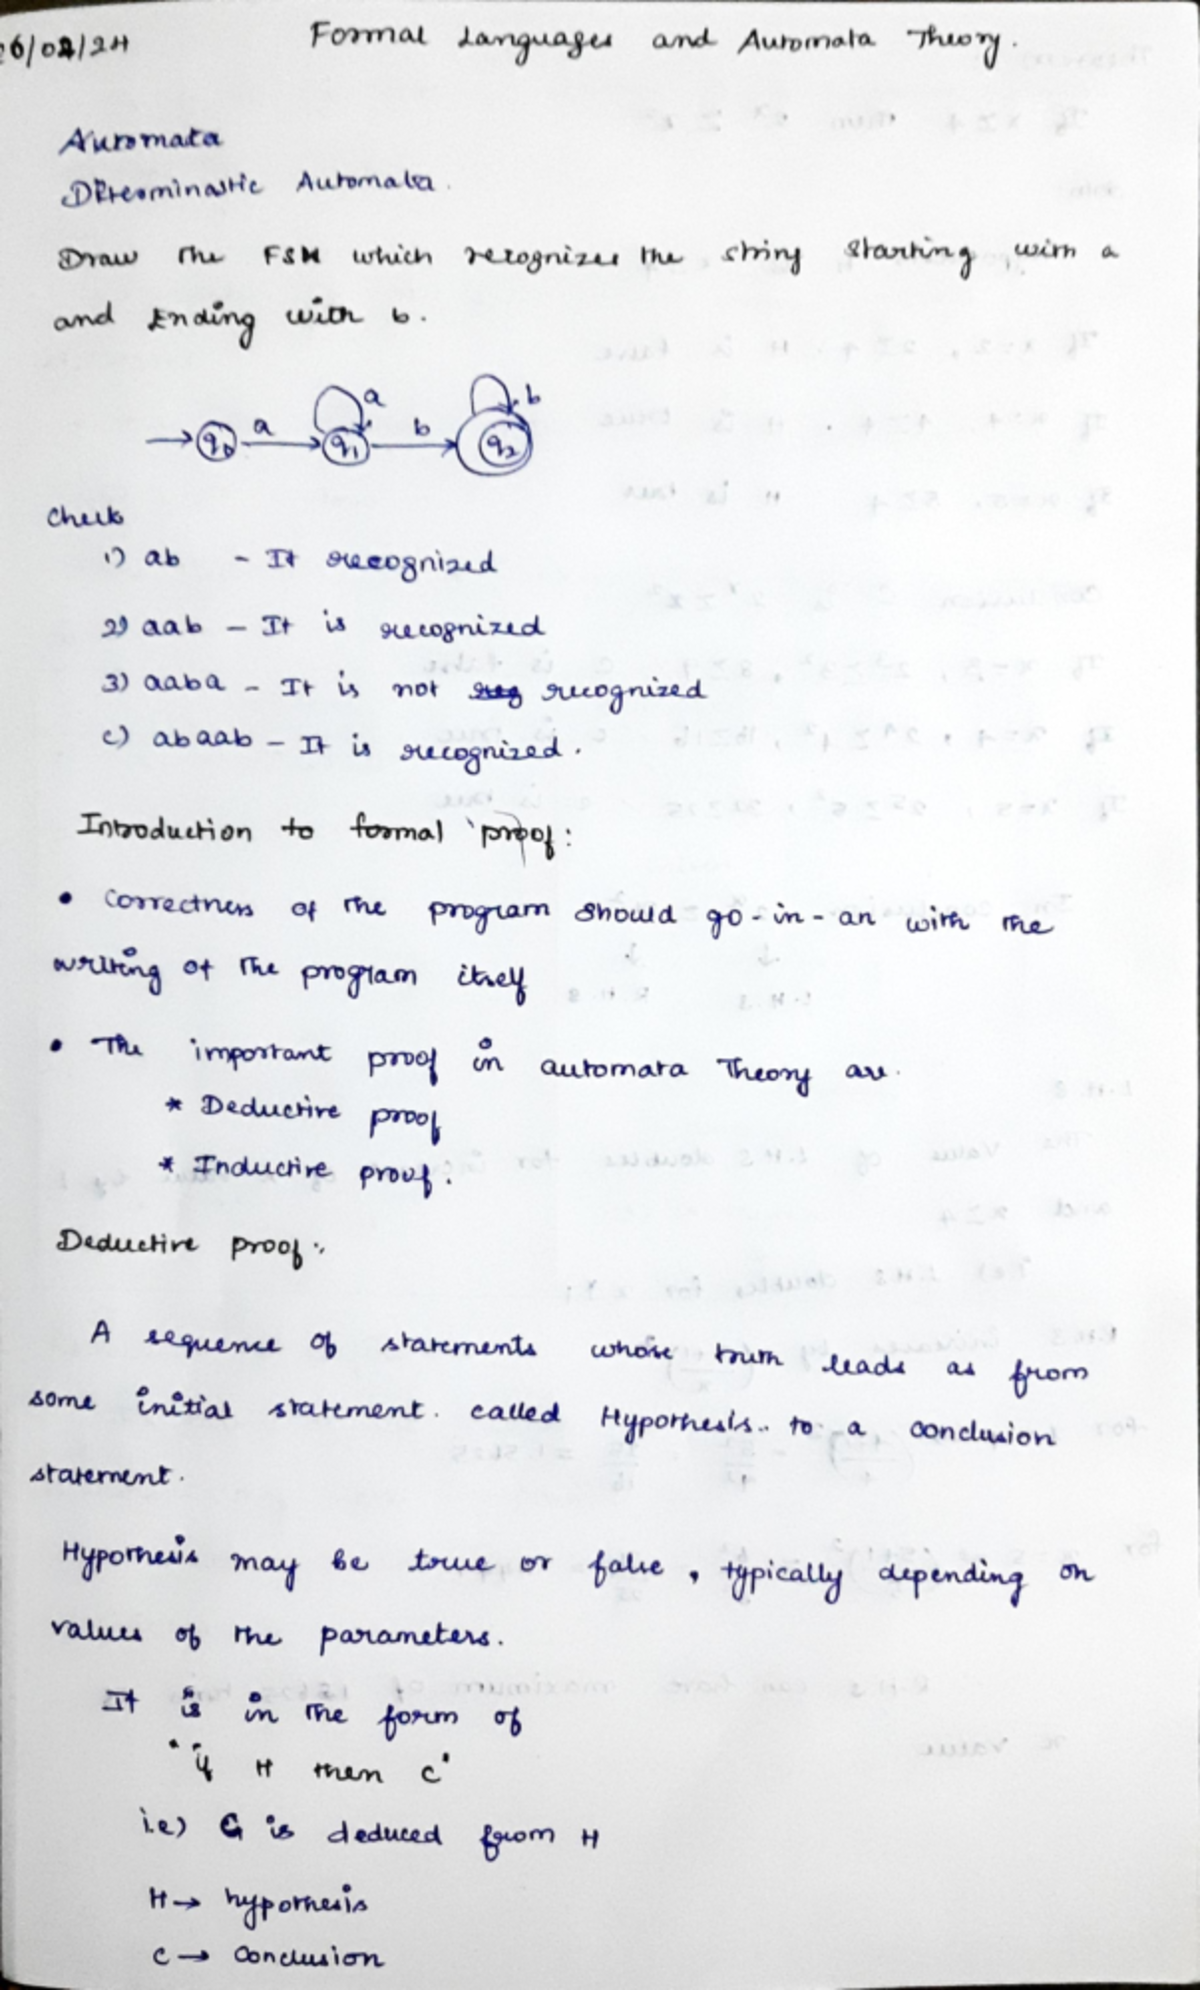 26/02/24
Formal Languages and Automata Theory.
Automata
Deterministic Automata.
Draw the FSM which recognizes the string starting with a
and Ending with b.
a b
q0 a q1 b q2
Check
1) ab - It recognized
2) aab - It is recognized
3) aaba - It is not recognized
c) abaab - It is recognized.
Introduction to formal proof:
• Correctness of the program should go-in-an with the
writing of the program itself
• The important proof in automata Theory are.
* Deductive proof
* Inductive proof.
Deductive proof:
A sequence of statements whose truth leads as from
some initial statement. called Hypothesis.. to a conclusion
statement.
Hypothesis may be true or false, typically depending on
values of the parameters.
It is in the form of
"if H then C"
i.e) C is deduced from H
H→ hypothesis
C → conclusion